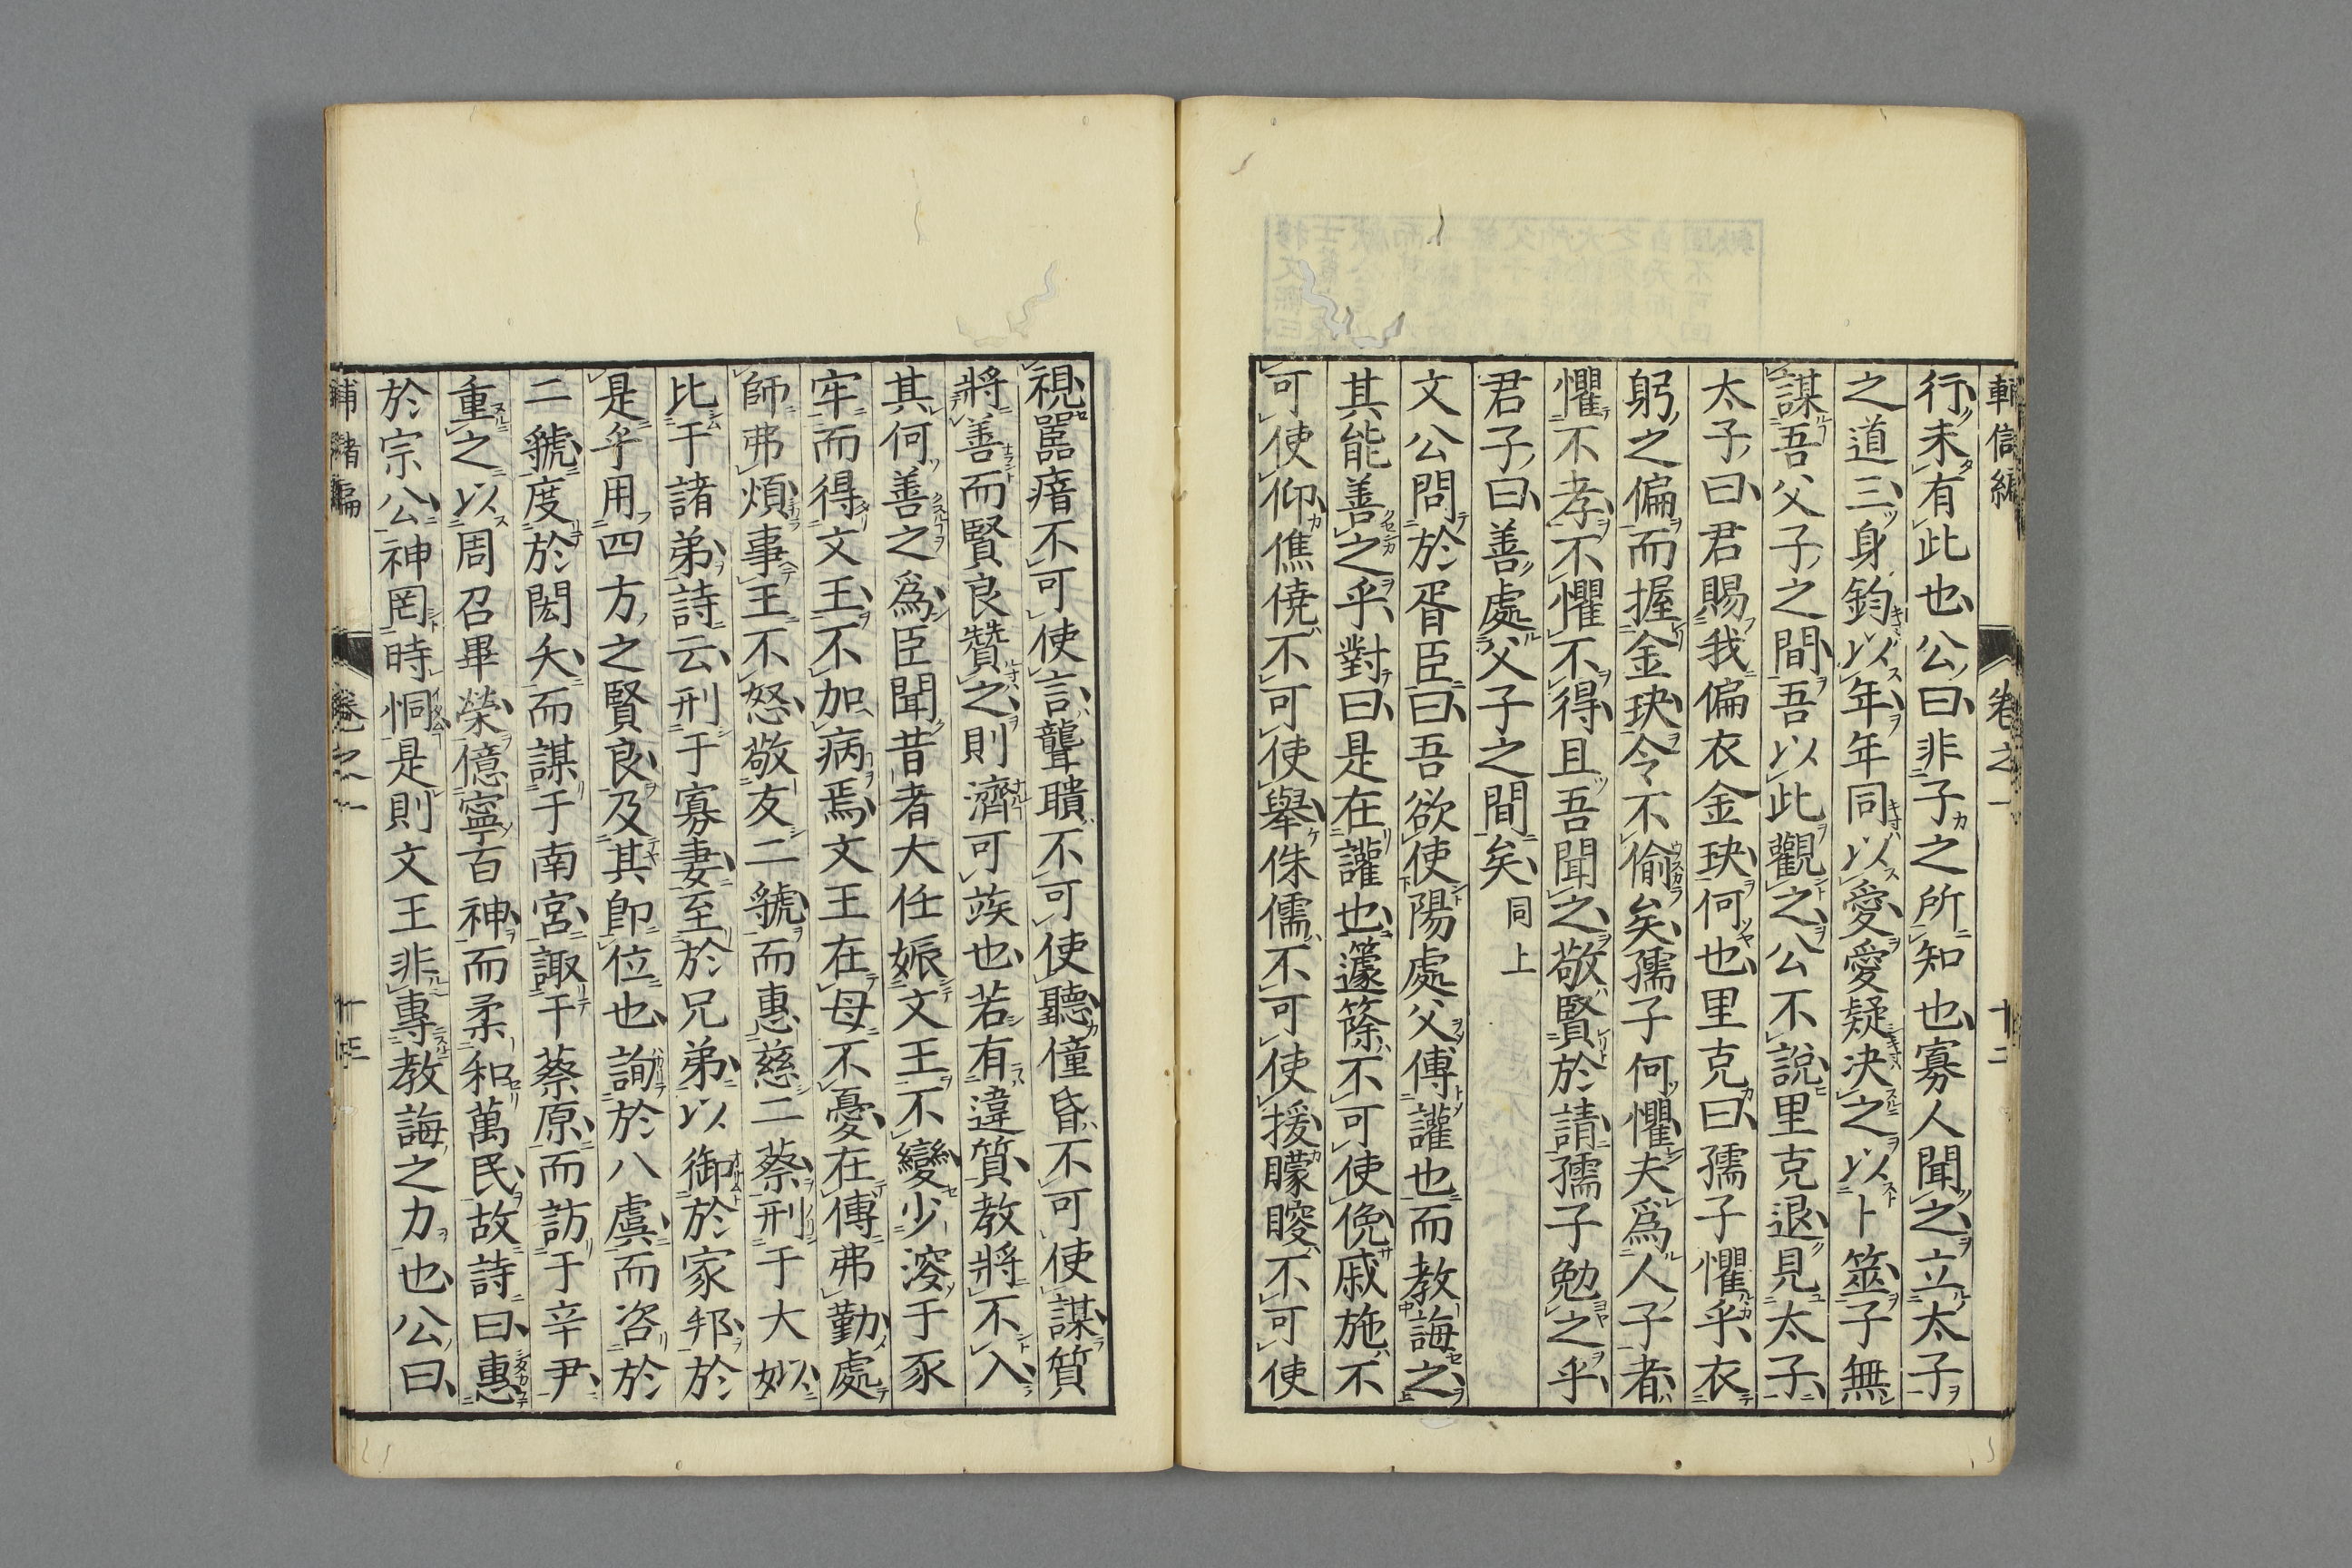 卷之一 十二
行未有此也公曰非子之所知也寡人聞之立太子
之道三身鈞以年年同以愛愛疑决之以卜筮子無
謀吾父子之間吾以此觀之公不說里克退見太子
太子曰君賜我偏衣金玦何也里克曰孺子懼乎衣
躬之偏而握金玦令不偷矣孺子何懼夫爲人子者
懼不孝不懼不得且吾聞之敬賢於請孺子勉之乎
君子曰善處父子之間矣同上
文公問於胥臣曰吾欲使陽處父傅讙也而教誨之
其能善之乎對曰是在讙也籧篨不可使俛戚施不
可使仰僬僥不可使舉侏儒不可使援矇瞍不可使
視嚚瘖不可使言聾聵不可使聽僮昏不可使謀質
將善而賢良贊之則濟可竢也若有違質教將不入
其何善之爲臣聞昔者大任娠文王不變少溲于豕
牢而得文王不加病焉文王在母不憂在傅弗勤處
師弗煩事王不怒敬友二虢而惠慈二蔡刑于大姒
比于諸弟詩云刑于寡妻至於兄弟以御於家邦於
是乎用四方之賢良及其卽位也詢於八虞而咨於
二虢度於閎夭而謀于南宮諏于蔡原而訪于辛尹
重之以周召畢榮億寧百神而柔和萬民故詩曰惠
於宗公神罔時恫是則文王非專教誨之力也公曰
卷之一 十三